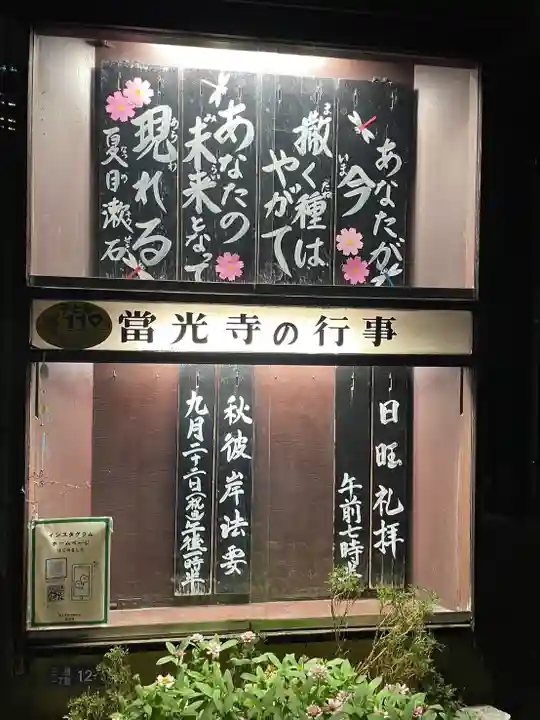 あなたが
今
撒く種は
やがて
あなたの
未来となって
現れる
夏目漱石
當光寺の行事
日旺礼拝
午前七時半
秋彼岸法要
九月二三日(祝)午後一時半
インスタグラム
ホームページ
はじめました